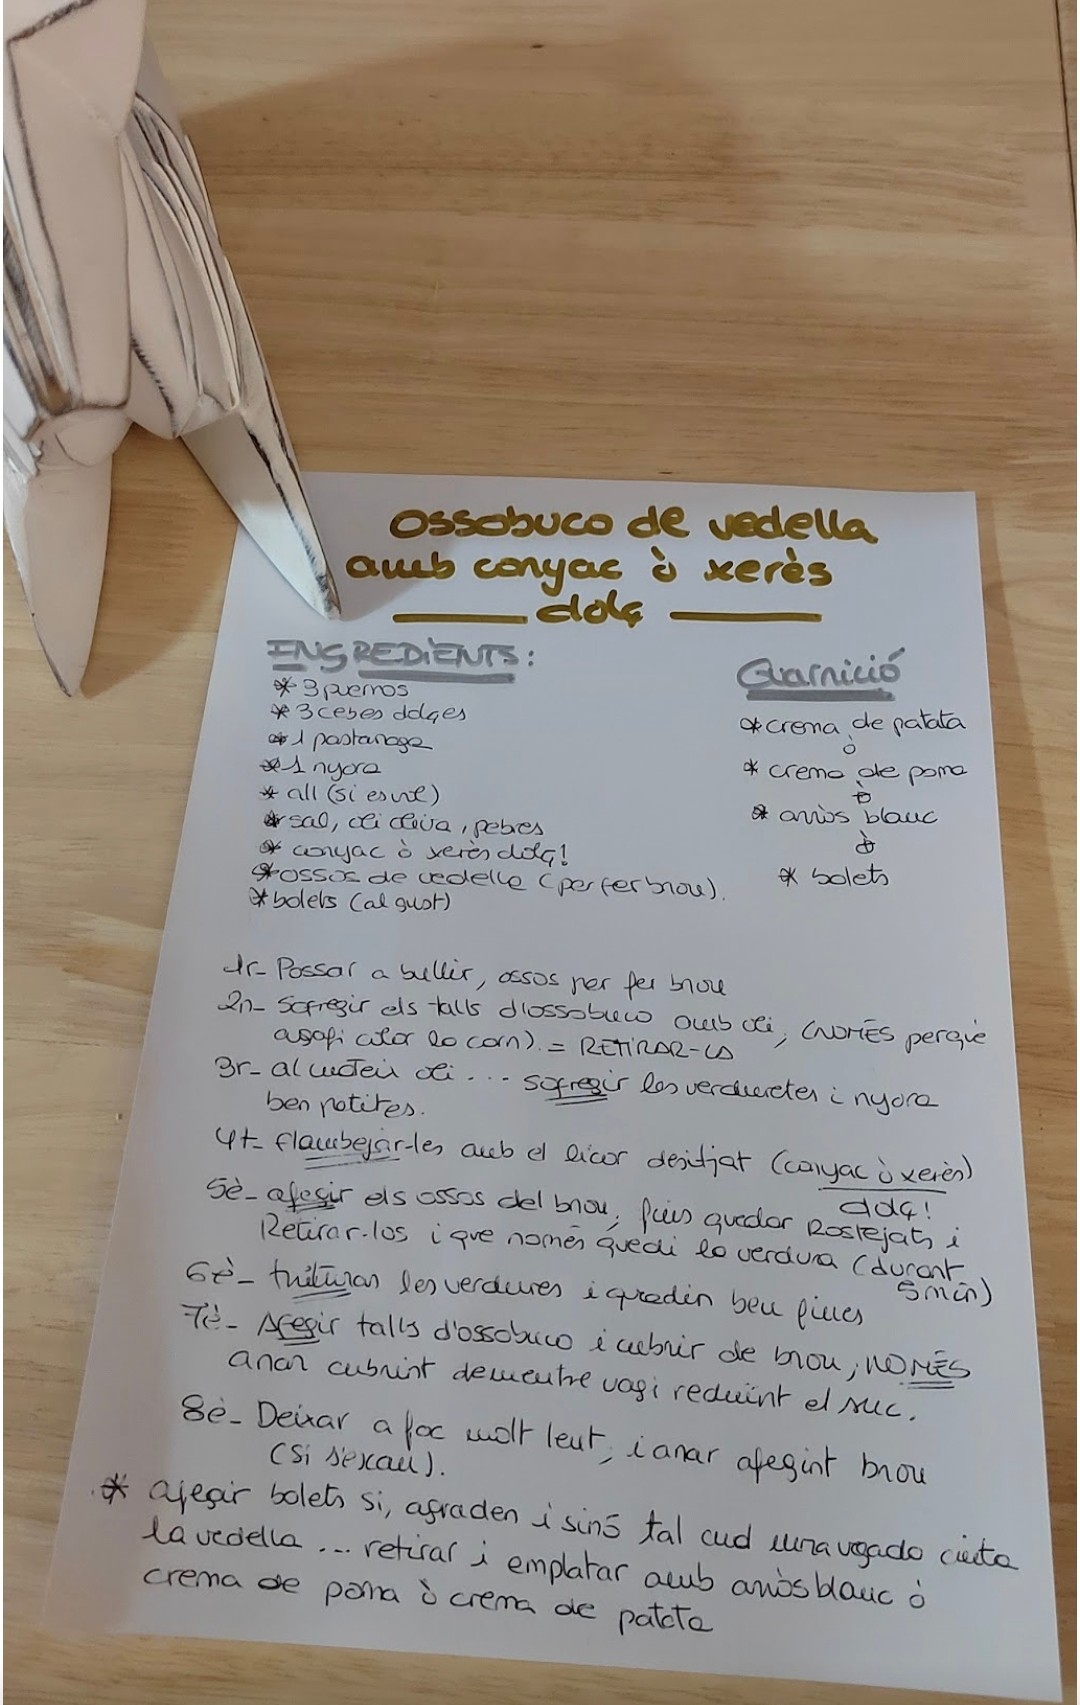 Ossobuco de vedella
amb conyac ò xerès
dolç
INGREDIENTS:
* 3 puerros
* 3 cebes dolçes
* 1 pastanaga
* 1 nyora
* all (si es vol)
* sal, oli oliva, pebres
* conyac ò xerès dolç!
* ossos de vedella (per fer brou).
* bolets (al gust)
Guarnició
* crema de patata
ò
* crema de poma
ò
* arròs blanc
ò
* bolets
1r- Possar a bullir, ossos per fer brou
2n- Sofregir els talls d'ossobuco amb oli, (NOMÉS perquè
agafi color la carn). = RETIRAR-LA
3r- al mateix oli... sofregir les verduretes i nyora
ben petites.
4t- flambejar-les amb el licor desitjat (conyac ò xerès)
dolç!
5è- afegir els ossos del brou, fins quedar Rostejats i
Retirar-los i que només quedi la verdura (durant
5 min)
6è- trituran les verdures i quedin ben fines
7è- Afegir talls d'ossobuco i cubrir de brou, NOMÉS
anar cubrint dementre vagi reduint el suc.
8è- Deixar a foc molt lent, i anar afegint brou
(si s'excau).
* afegir bolets si, agraden i sinó tal cual una vegada cuita
la vedella ... retirar i emplatar amb arròs blanc ò
crema de poma ò crema de patata